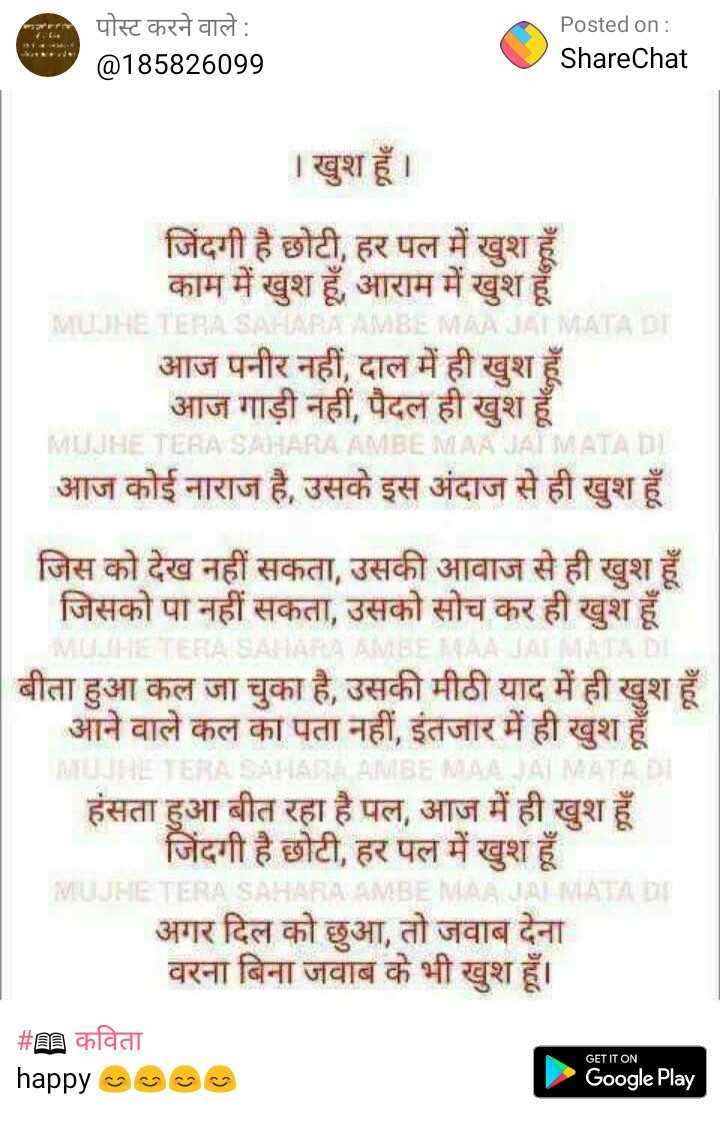 पोस्ट करने वाले :
@185826099
Posted on :
ShareChat
। खुश हूँ ।
जिंदगी है छोटी, हर पल में खुश हूँ
काम में खुश हूँ, आराम में खुश हूँ
MUJHE TERA SAHARA AMBE MAA JAI MATA DI
आज पनीर नहीं, दाल में ही खुश हूँ
आज गाड़ी नहीं, पैदल ही खुश हूँ
MUJHE TERA SAHARA AMBE MAA JAI MATA DI
आज कोई नाराज है, उसके इस अंदाज से ही खुश हूँ
जिस को देख नहीं सकता, उसकी आवाज से ही खुश हूँ
जिसको पा नहीं सकता, उसको सोच कर ही खुश हूँ
MUJHE TERA SAHARA AMBE MAA JAI MATA DI
बीता हुआ कल जा चुका है, उसकी मीठी याद में ही खुश हूँ
आने वाले कल का पता नहीं, इंतजार में ही खुश हूँ
MUJHE TERA SAHARA AMBE MAA JAI MATA DI
हंसता हुआ बीत रहा है पल, आज में ही खुश हूँ
जिंदगी है छोटी, हर पल में खुश हूँ
MUJHE TERA SAHARA AMBE MAA JAI MATA DI
अगर दिल को छुआ, तो जवाब देना
वरना बिना जवाब के भी खुश हूँ।
#📖 कविता
happy 😊😊😊😊
GET IT ON
Google Play